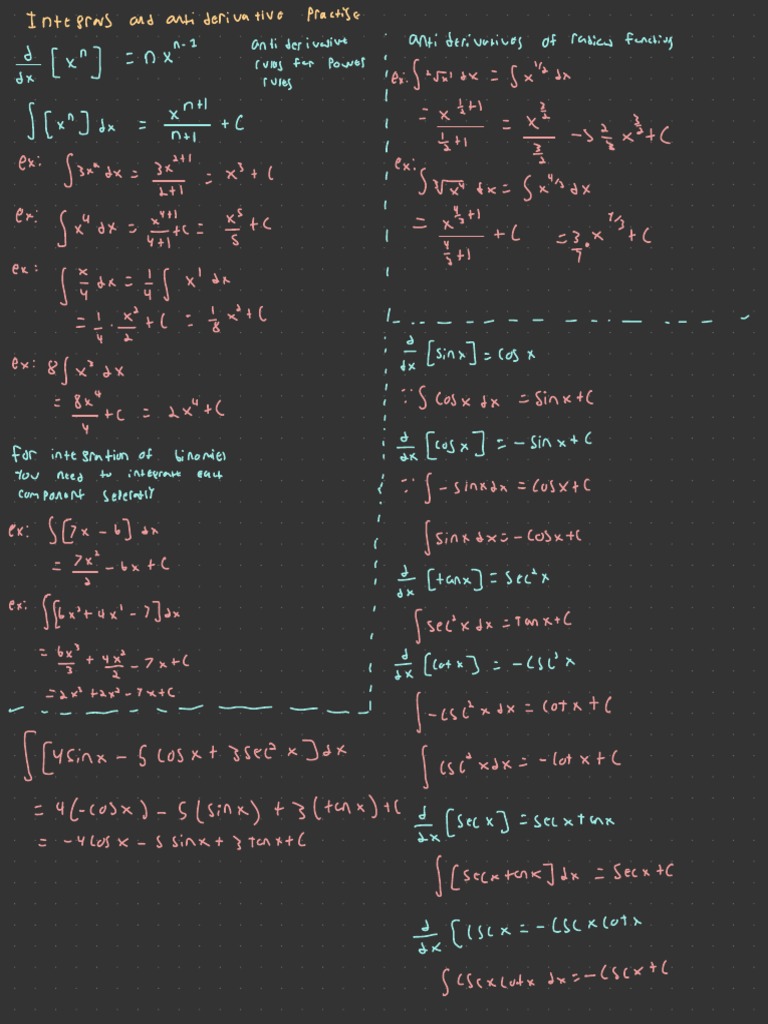 Integrals and antiderivative Practise
d/dx [xⁿ] = nxⁿ⁻¹
antiderivative
rules for Power
rules
∫[xⁿ] dx = xⁿ⁺¹/(n+1) + C
ex: ∫3x² dx = 3x²⁺¹/(2+1) = x³ + C
ex: ∫x⁴ dx = x⁴⁺¹/(4+1) + C = x⁵/5 + C
ex: ∫x/4 dx = 1/4 ∫ x¹ dx
= 1/4 · x²/2 + C = 1/8 x² + C
ex: 8∫x³ dx
= 8x⁴/4 + C = 2x⁴ + C
For integration of binomial
You need to integrate each
component seperatly
ex: ∫[7x − 6] dx
= 7x²/2 − 6x + C
ex: ∫[6x² + 4x¹ − 7] dx
= 6x³/3 + 4x²/2 − 7x + C
= 2x³ + 2x² − 7x + C
∫[4sinx − 5cosx + 3sec²x] dx
= 4(−cosx) − 5(sinx) + 3(tanx) + C
= −4cosx − 5sinx + 3tanx + C
antiderivatives of radical functions
ex: ∫²√x¹ dx = ∫x^(1/2) dx
= x^(1/2+1)/(1/2+1) = x^(3/2)/(3/2) → 2/3 x^(3/2) + C
ex: ∫³√x⁴ dx = ∫x^(4/3) dx
= x^(4/3+1)/(4/3+1) + C = 3/7 · x^(7/3) + C
d/dx [sinx] = cosx
∵ ∫cosx dx = sinx + C
d/dx [cosx] = −sinx + C
∵ ∫−sinx dx = cosx + C
∫sinx dx = −cosx + C
d/dx [tanx] = sec²x
∫sec²x dx = tanx + C
d/dx [cotx] = −csc²x
∫−csc²x dx = cotx + C
∫csc²x dx = −cotx + C
d/dx [secx] = secxtanx
∫[secxtanx] dx = secx + C
d/dx [cscx = −cscxcotx
∫cscxcotx dx = −cscx + C